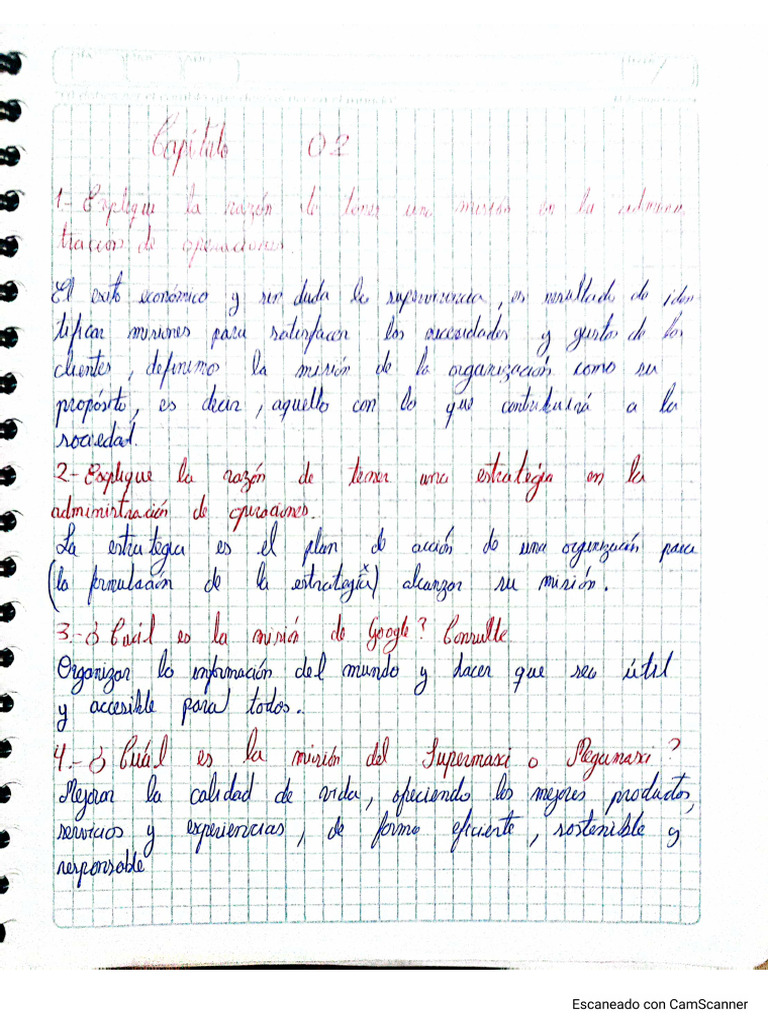 Capítulo 02
1- Explique la razón de tener una misión en la adminis
tración de operaciones.
El exito económico y sin duda la supervivencia, es resultado de iden
tificar misiones para satisfacer las necesidades y gustos de los
clientes, definimos la misión de la organización como su
propósito, es decir, aquello con lo que contribuirá a la
sociedad.
2- Explique la razón de tener una estratégia en la
administración de operaciones.
La estrategia es el plan de acción de una organización para
(la formulación de la estrategia x) alcanzar su misión.
3.- ¿Cuál es la misión de Google? Consulte
Organizar la información del mundo y hacer que sea útil
y accesible para todos.
4.- ¿Cuál es la misión del Supermaxi o Megamaxi?
Mejorar la calidad de vida, ofreciendo los mejores productos,
servicios y experiencias, de forma eficiente, sostenible y
responsable
Escaneado con CamScanner